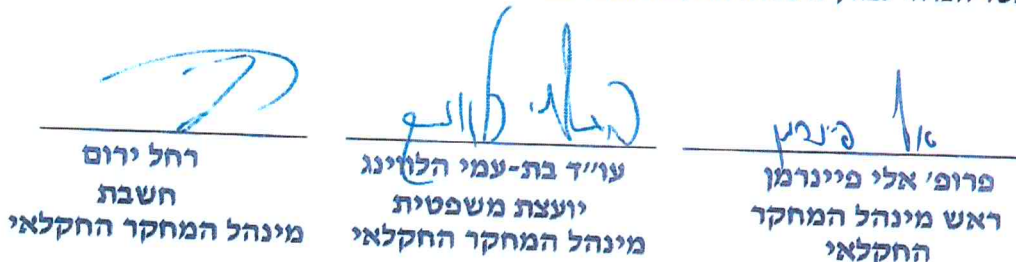 פרופ' אלי פיינרמן
ראש מינהל המחקר
החקלאי
עו"ד בת-עמי הלווינג
יועצת משפטית
מינהל המחקר החקלאי
רחל ירום
חשבת
מינהל המחקר החקלאי